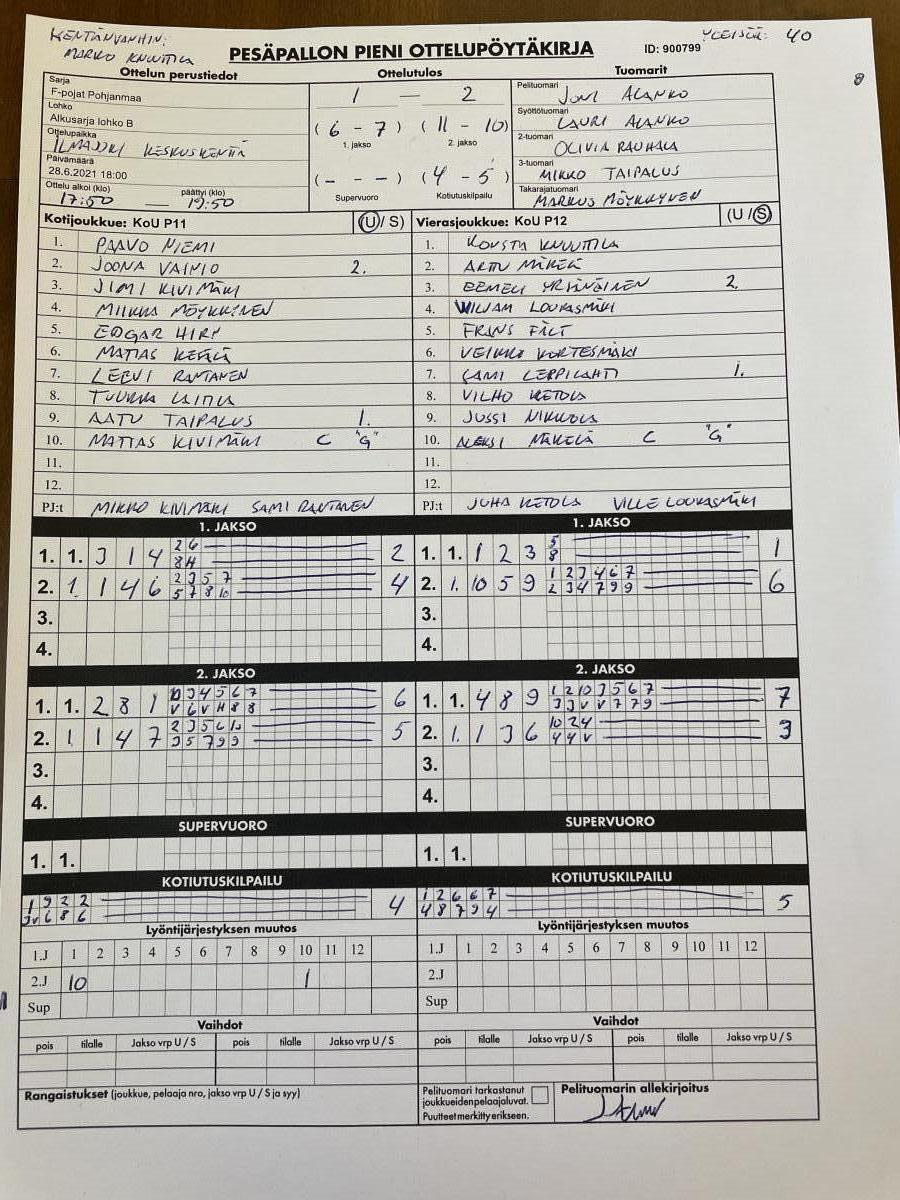 KENTÄNVANHIN:
MARKO KNUUTILA
YLEISÖÄ: 40
PESÄPALLON PIENI OTTELUPÖYTÄKIRJA
ID: 900799
8
Ottelun perustiedot
Ottelutulos
Tuomarit
Sarja
F-pojat Pohjanmaa
Lohko
Alkusarja lohko B
Ottelupaikka
ILMAJOKI KESKUSKENTTÄ
Päivämäärä
28.6.2021 18:00
Ottelu alkoi (klo) päättyi (klo)
17:50 — 19:50
1 — 2
(6 - 7) (11 - 10)
1. jakso 2. jakso
(- - -) (4 - 5)
Supervuoro Kotiutuskilpailu
Pelituomari
JONI ALANKO
Syöttötuomari
LAURI ALANKO
2-tuomari
OLIVIA RAUHALA
3-tuomari
MIKKO TAIPALUS
Takarajatuomari
MARKUS MÖYKKYNEN
Kotijoukkue: KoU P11 (U / S)
1. PAAVO NIEMI
2. JOONA VAINIO 2.
3. JIMI KIVIMÄKI
4. MIIKKA MÖYKKYNEN
5. EDGAR HIRY
6. MATIAS KETOLÄ
7. LEEVI RANTANEN
8. TUUKKA LAITILA
9. AATU TAIPALUS 1.
10. MATIAS KIVIMÄKI C "G"
11.
12.
PJ:t MIKKO KIVIMÄKI SAMI RANTANEN
Vierasjoukkue: KoU P12 (U / S)
1. KONSTA KNUUTILA
2. ARTTU MÄKELÄ
3. EEMELI YRJÄNÄINEN 2.
4. WILJAM LOUKASMÄKI
5. FRANS FÄLT
6. VEIKKO KORTESMÄKI
7. SAMI LEPPILAHTI 1.
8. VILHO KETOLA
9. JUSSI NIKKOLA
10. ALEKSI MÄKELÄ C "G"
11.
12.
PJ:t JUHA KETOLA VILLE LOUKASMÄKI
1. JAKSO
1. 1. 3 1 4 2 6 2
8 H
2. 1. 1 4 6 2 3 5 7 4
5 7 8 10
3.
4.
1. JAKSO
1. 1. 1 2 3 5 1
8
2. 1. 10 5 9 1 2 3 4 6 7 6
2 3 4 7 9 9
3.
4.
2. JAKSO
1. 1. 2 8 1 10 3 4 5 6 7 6
V 6 V H 8 8
2. 1. 1 4 7 2 3 5 6 10 5
3 5 7 9 9
3.
4.
2. JAKSO
1. 1. 4 8 9 1 2 10 3 5 6 7 7
3 3 V V 7 7 9
2. 1. 1 3 6 10 2 4 3
4 4 V
3.
4.
SUPERVUORO
1. 1.
SUPERVUORO
1. 1.
KOTIUTUSKILPAILU
1 9 2 2 4
3 V 6 8 6
KOTIUTUSKILPAILU
1 2 6 6 7 5
4 8 7 9 4
Lyöntijärjestyksen muutos
1.J 1 2 3 4 5 6 7 8 9 10 11 12
2.J 10 1
Sup
Lyöntijärjestyksen muutos
1.J 1 2 3 4 5 6 7 8 9 10 11 12
2.J
Sup
Vaihdot
pois tilalle Jakso vrp U / S pois tilalle Jakso vrp U / S
Vaihdot
pois tilalle Jakso vrp U / S pois tilalle Jakso vrp U / S
Rangaistukset (joukkue, pelaaja nro, jakso vrp U / S ja syy)
Pelituomari tarkastanut
joukkueiden pelaajaluvat.
Puutteet merkitty erikseen.
Pelituomarin allekirjoitus